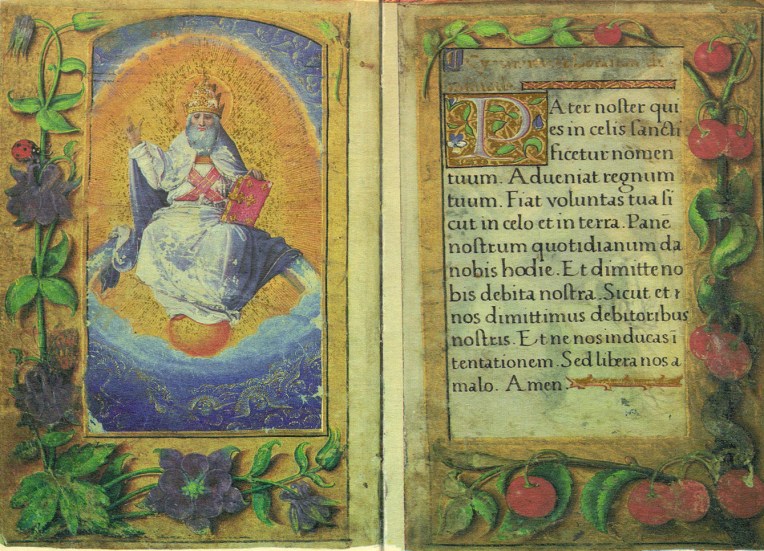 PAter noster qui
es in celis sancti
ficetur nomen
tuum. Adueniat regnum
tuum. Fiat voluntas tua si
cut in celo et in terra. Panē
nostrum quotidianum da
nobis hodie. Et dimitte no
bis debita nostra. Sicut et
nos dimittimus debitoribus
nostris. Et ne nos inducas ī
tentationem. Sed libera nos a
malo. Amen.